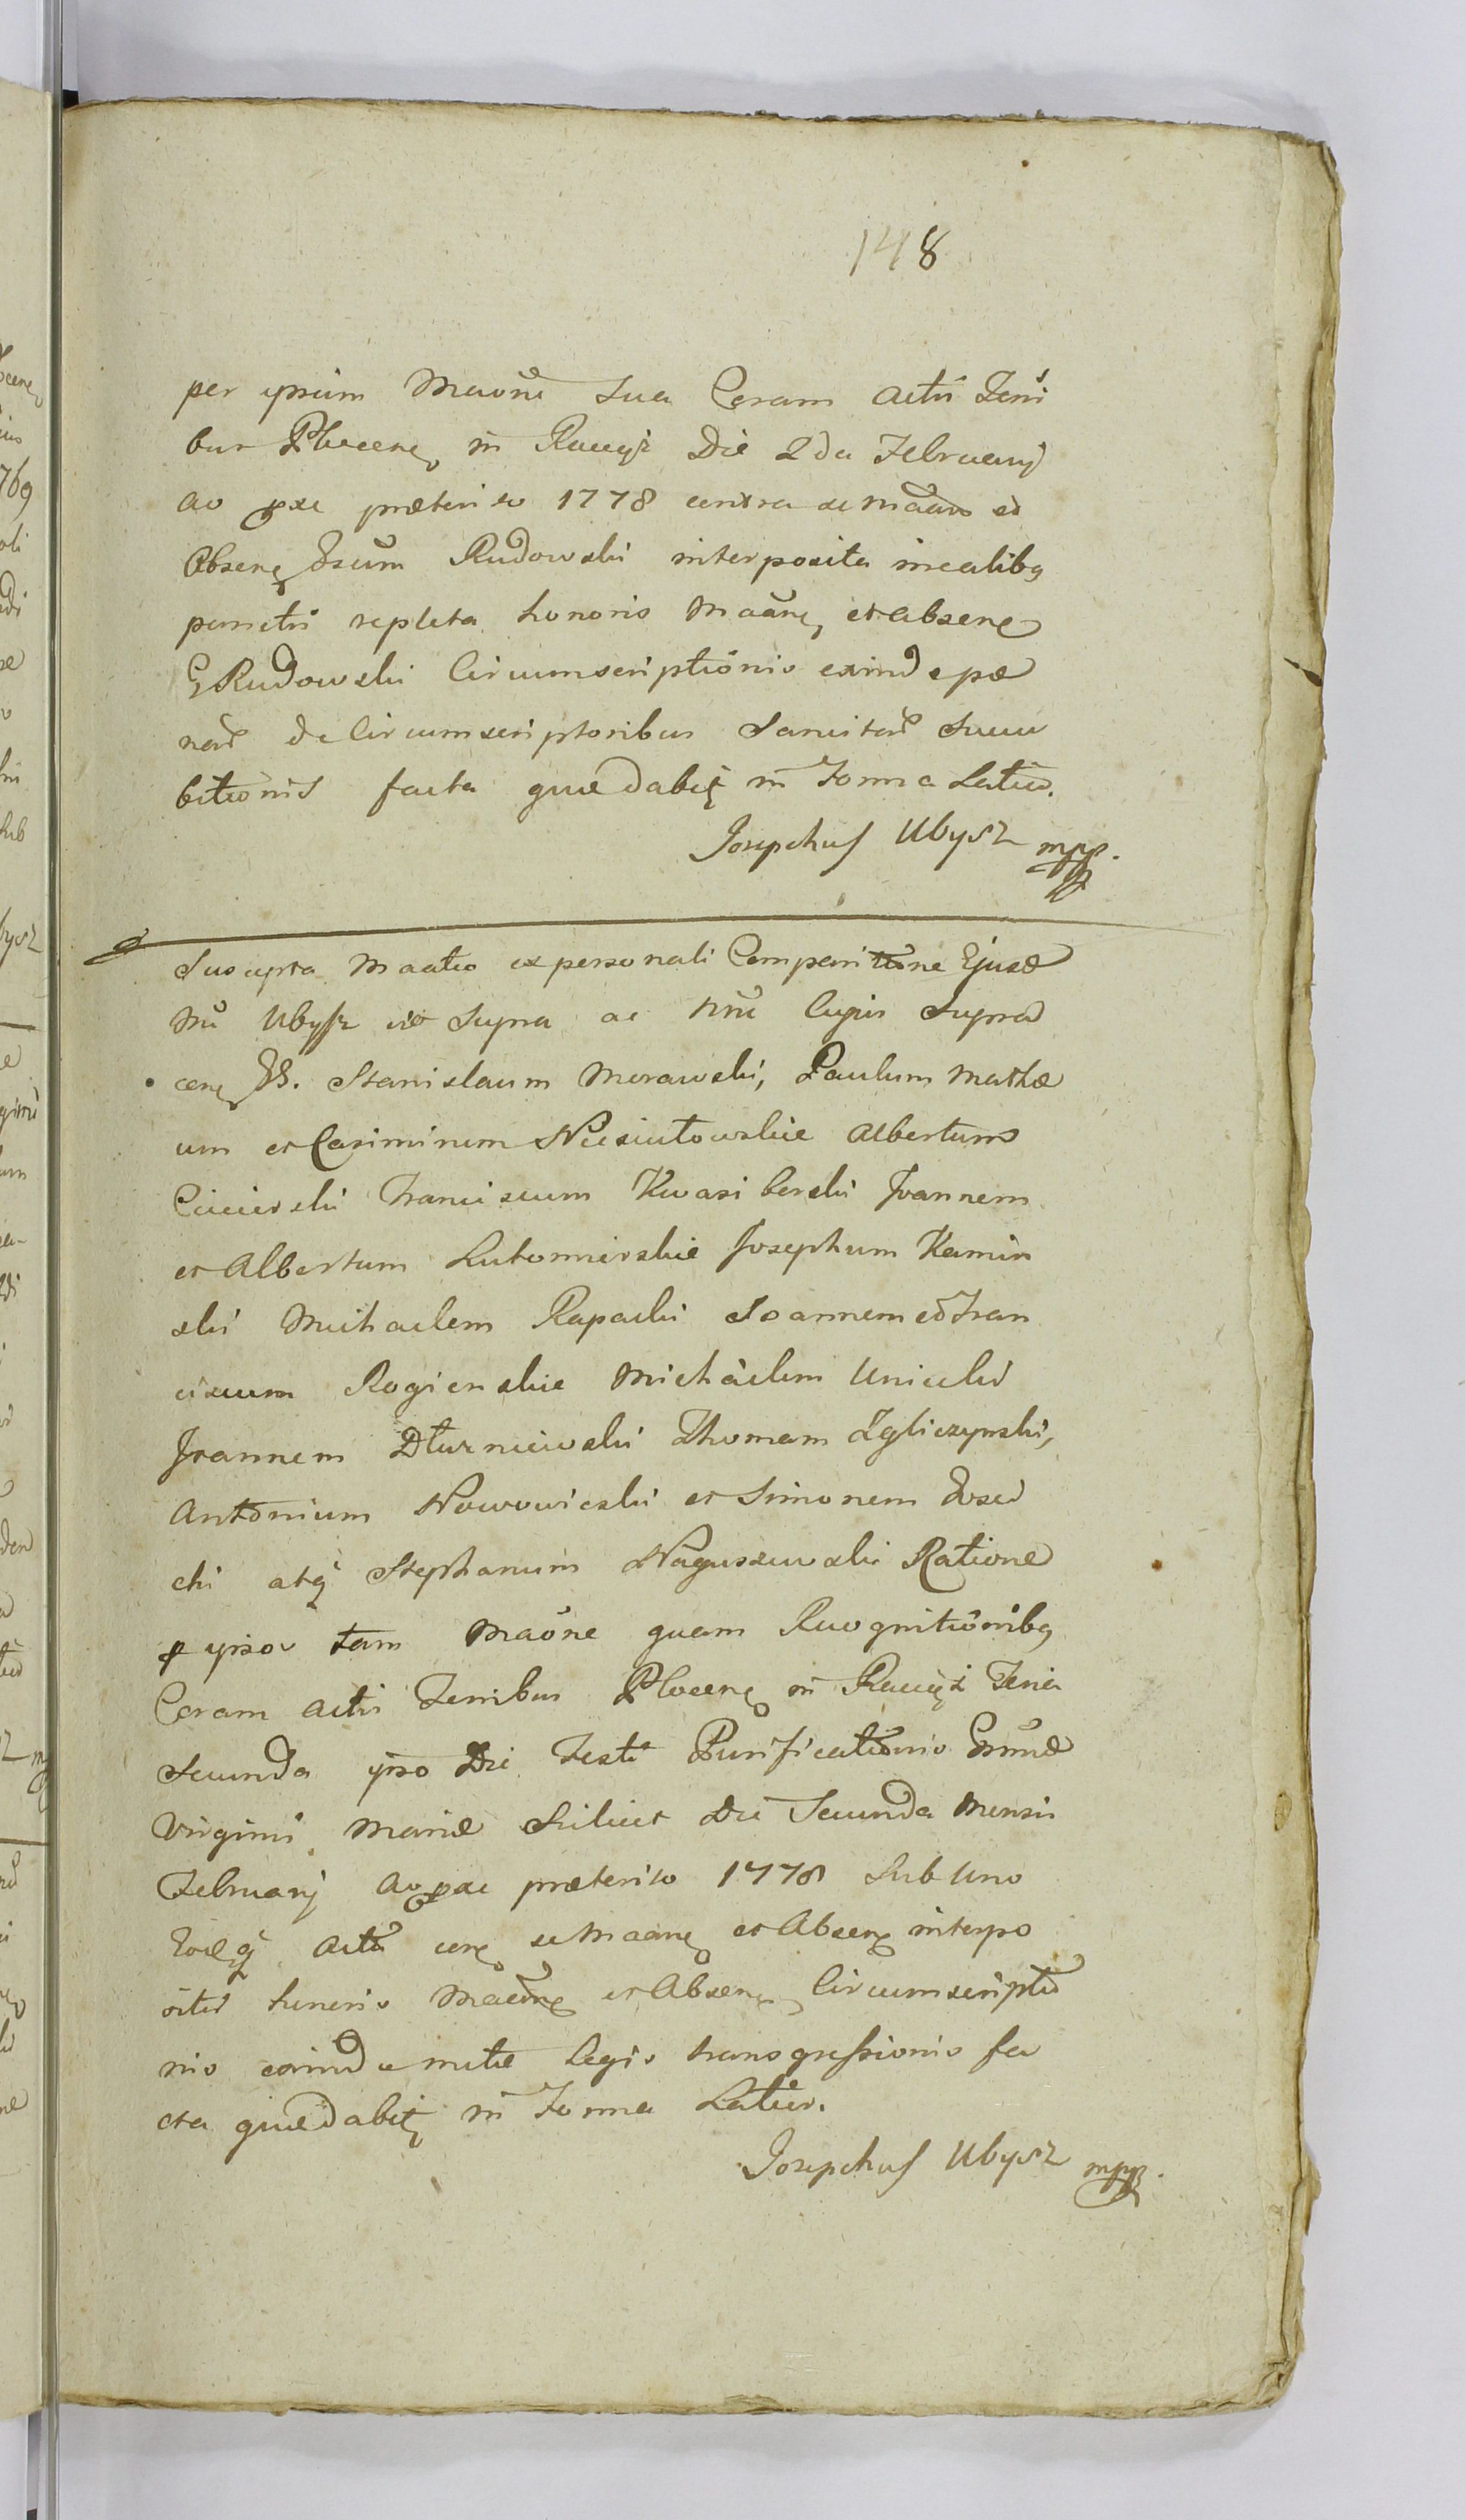 148
per ipsum Maône sua Coram actis Terri
bus Plocen in Raciąż Die 2da Februarij
Ao pxe præterito 1778 contra se Maan et
Absen Gsum Rudowski interposita inealibq
punctis repleta honoris Maane et absen
G Rudowski Circumscriptionis exinde pæ
nar de Circumscriptoribus Sancitar Succu
bitionis facta quæ dabit in Forma Latior.
Josephus Ubysz mpp.
Suscepta Maatio ex personali Comparitione Ejusd
Mci Ubysz ut Supra ac Nri Cujus Supra
cen GG. Stanislaum Morawski, Paulum Mathæ
um et Casimirum Niesiutowskie Albertum
Ciecierski Franciscum Kwasiberski Joannem
et Albertum Lutomierskie Josephum Kamin
ski Michaelem Rapacki Joannem et Fran
ciscum Rogienskie Michaelem Unicki
Joannem Dłuzniewski Thomam Zgliczynski,
Antonium Nowowieski et Simonem Gose
cki atq Stephanum Naguszewski Ratione
p ipsos tam Maône quam Recognitionibq
Coram actis Terribus Plocen in Raciąż Feria
Secunda ipso Die Festi Purificationis Gmmæ
Virginis Mariæ Scilicet Die Secunda Mensis
Februarij Ao pxe præterito 1778 Sub Uno
Eodeq actu cen se Maane et Absen interpo
sitis honoris Maane et Absen Circumscriptio
nis exinde mutæ Legis transgressionis fa
cta quæ dabit in Forma Latior.
Josephus Ubysz mpp.